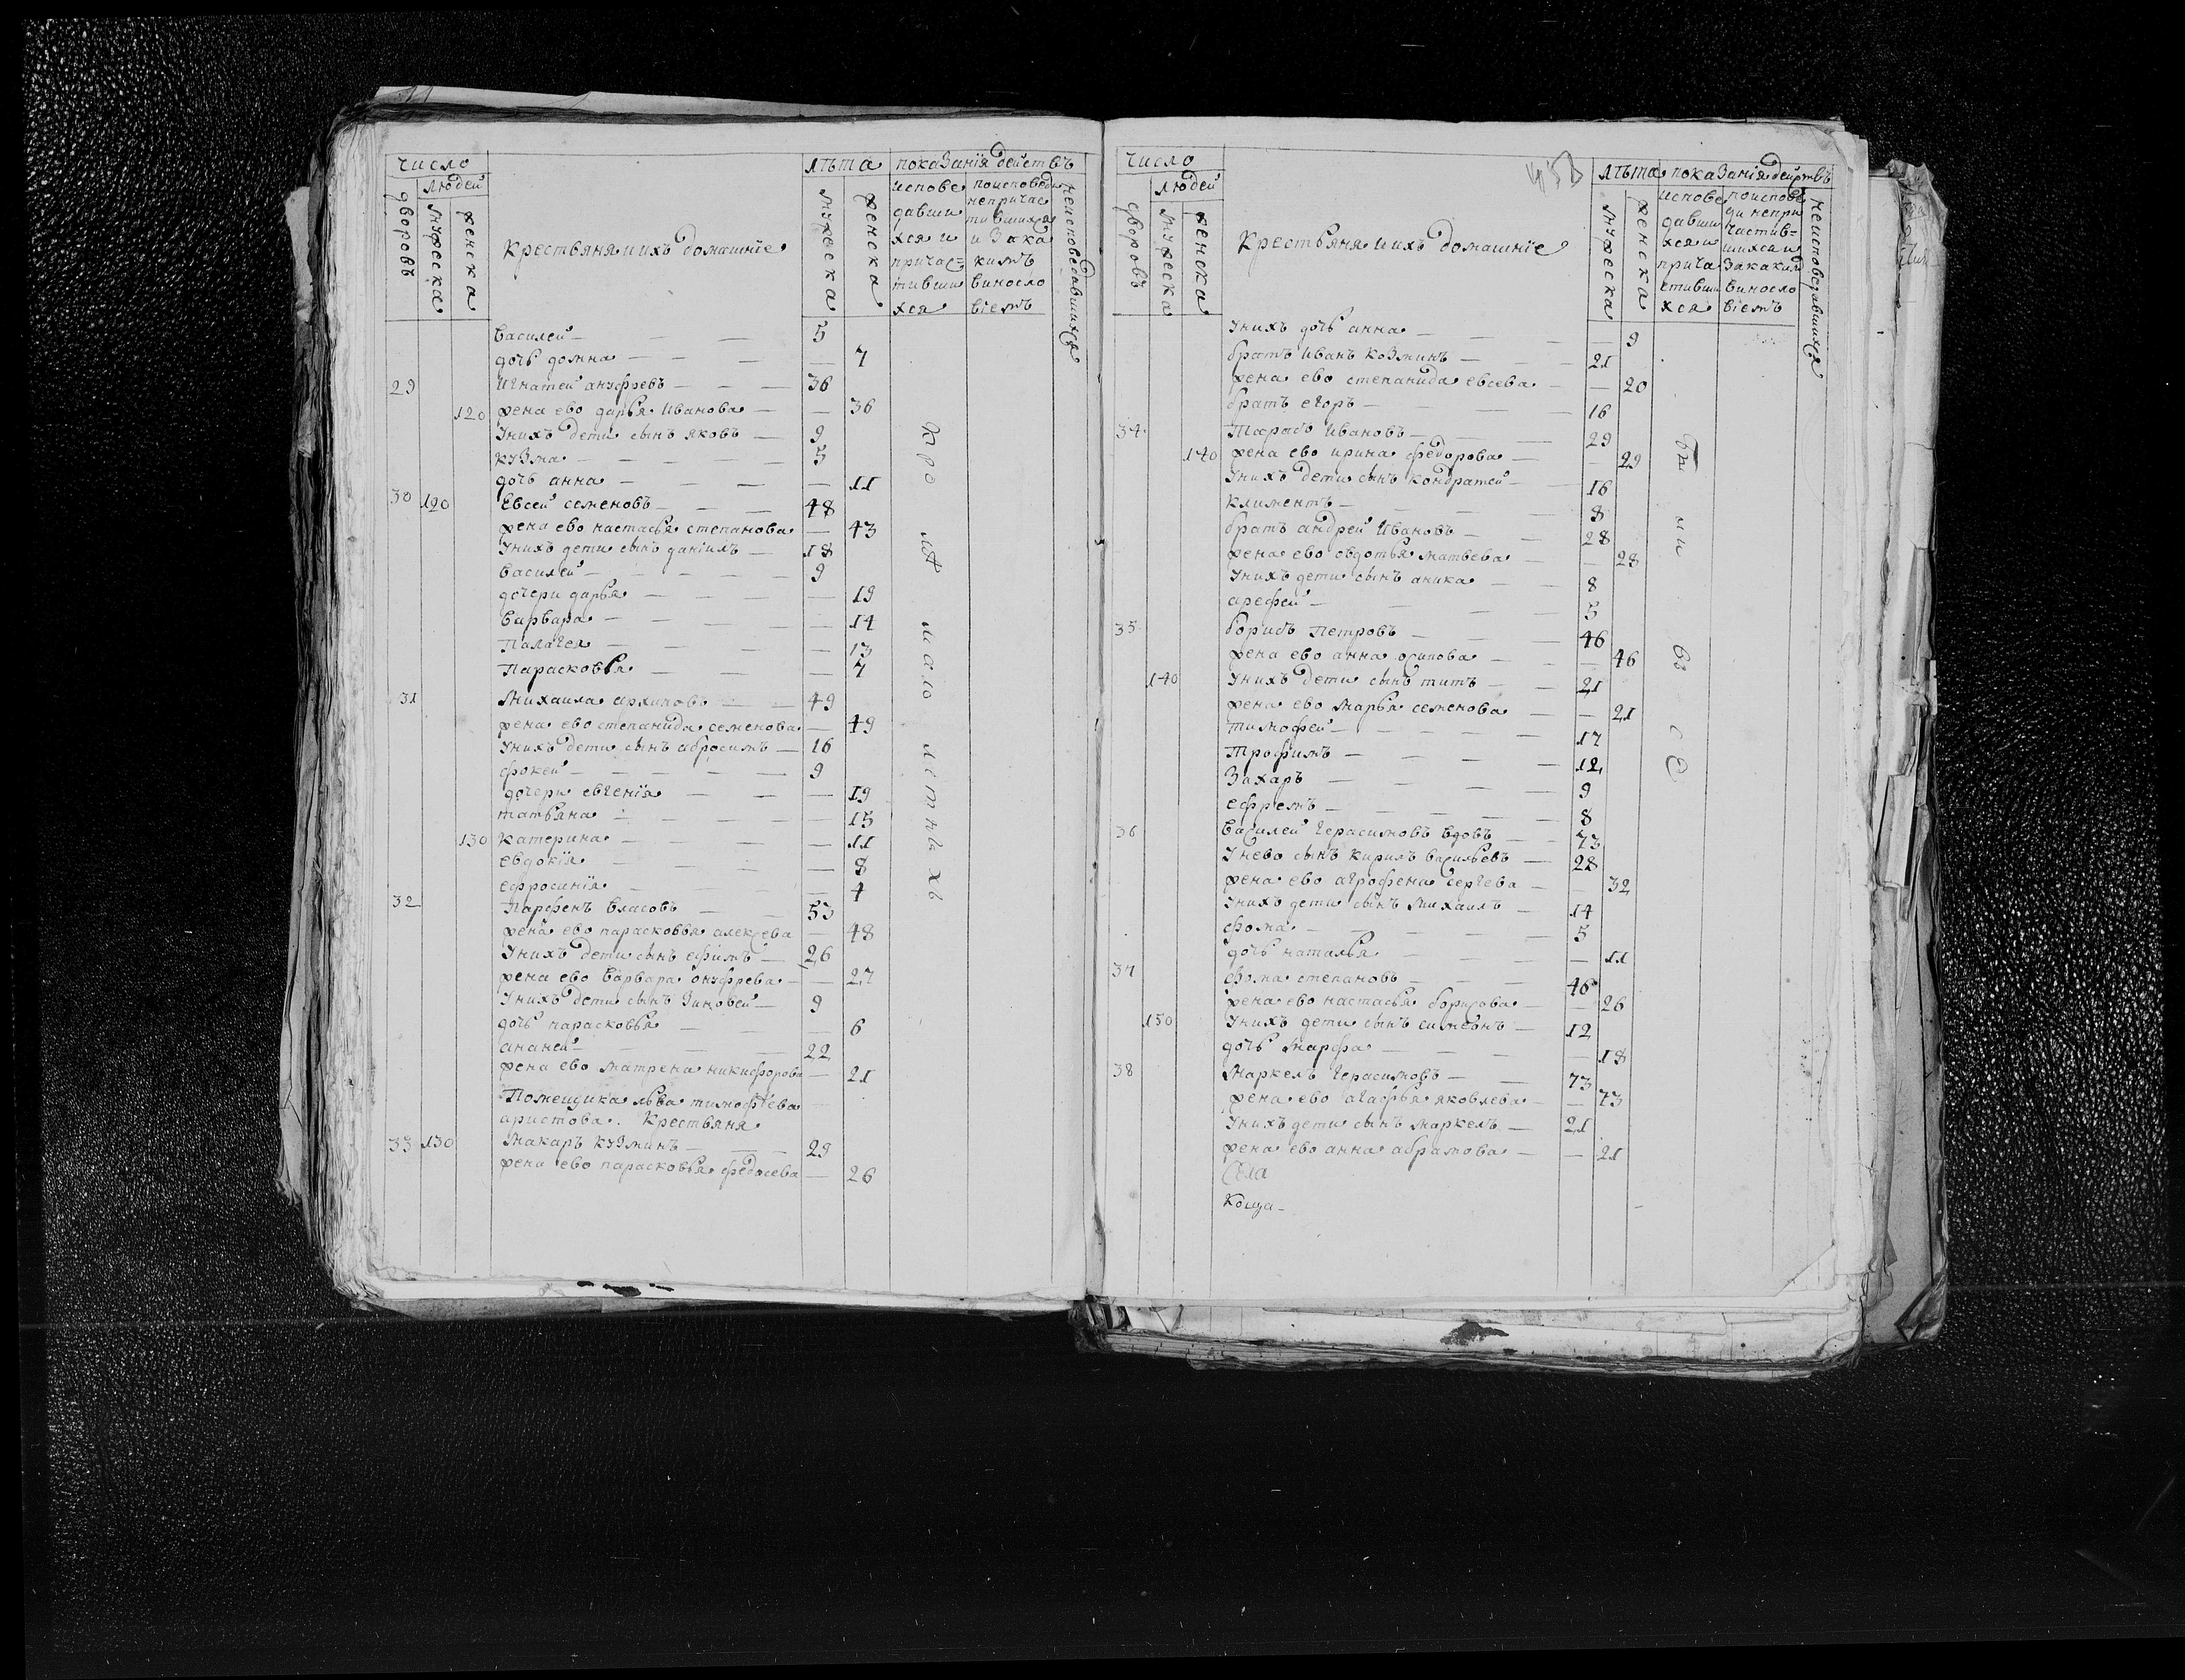 число
людей
дворовъ
мужеска
женска
крестьяня и ихъ домашніе
лѣта
мужеска
женска
показанія действъ
испове
давши
хся и
причас=
тивши
хся
поисповеди
непричас
тившихся
и зака
кимъ
виносло
віемъ
неисповедавшихся
василей — 5
дочь домна — 7
29 игнатей ануфревъ — 36
120 жена ево дарья иванова — 36
у нихъ дети сынъ яковъ — 9
кузма — 5
дочь анна — 11
30 120 Евсей семеновъ — 48
жена ево настасья степанова — 43
у нихъ дети сынъ даніилъ — 18
василей — 9
дочери дарья — 19
варвара — 14
палагея — 13
парасковья — 7
31 михаила архиповъ — 49
жена ево степанида семенова — 49
у нихъ дети сынъ абросимъ — 16
фокей — 9
дочери евгенія — 19
татьяна — 15
130 катерина — 11
евдокія — 8
ефросинія — 4
32 Парфенъ власовъ — 53
жена ево парасковья алексева — 48
у нихъ дети сынъ ефимъ — 26
жена ево варвара онуфрева — 27
у нихъ дети сынъ зиновей — 9
дочь парасковья — 6
ананей — 22
жена ево матрена никифорова — 21
Помещика льва тимофѣева
аристова. Крестьяня
33 130 макаръ кузминъ — 29
жена ево парасковья федосева — 26
кромѣ малолетныхъ
число
людей
дворовъ
мужеска
женска
крестьяня и ихъ домашніе
лѣта
мужеска
женска
показанія действъ
испове
давши
хся и
прича
стивши
хся
поиспове
ди непри
частив=
шихся и
за каким
виносло
віемъ
неисповедавшихся
у нихъ дочь анна — 9
братъ иванъ козминъ — 21
жена ево степанида евсева — 20
братъ егоръ — 16
34 Тарасъ ивановъ — 29
140 жена ево ирина федорова — 29
у нихъ дети сынъ кондратей — 16
климентъ — 8
братъ андрей ивановъ — 28
жена ево овдотья матвева — 28
у нихъ дети сынъ аника — 8
арефей — 5
35 борисъ петровъ — 46
жена ево анна осипова — 46
140 у нихъ дети сынъ титъ — 21
жена ево марья семенова — 21
тимофей — 17
трофимъ — 12
захаръ — 9
ефремъ — 8
36 василей герасимовъ вдовъ — 73
у нево сынъ кирилъ васильевъ — 28
жена ево агрофена сергева — 32
у нихъ дети сынъ михаилъ — 14
фома — 5
дочь наталья — 11
37 фома степановъ — 46
жена ево настасья борисова — 26
150 у нихъ дети сынъ симеонъ — 12
дочь марфа — 18
38 маркелъ герасимовъ — 73
жена ево агафья яковлева — 73
у нихъ дети сынъ маркелъ — 21
жена ево анна абрамова — 21
Села